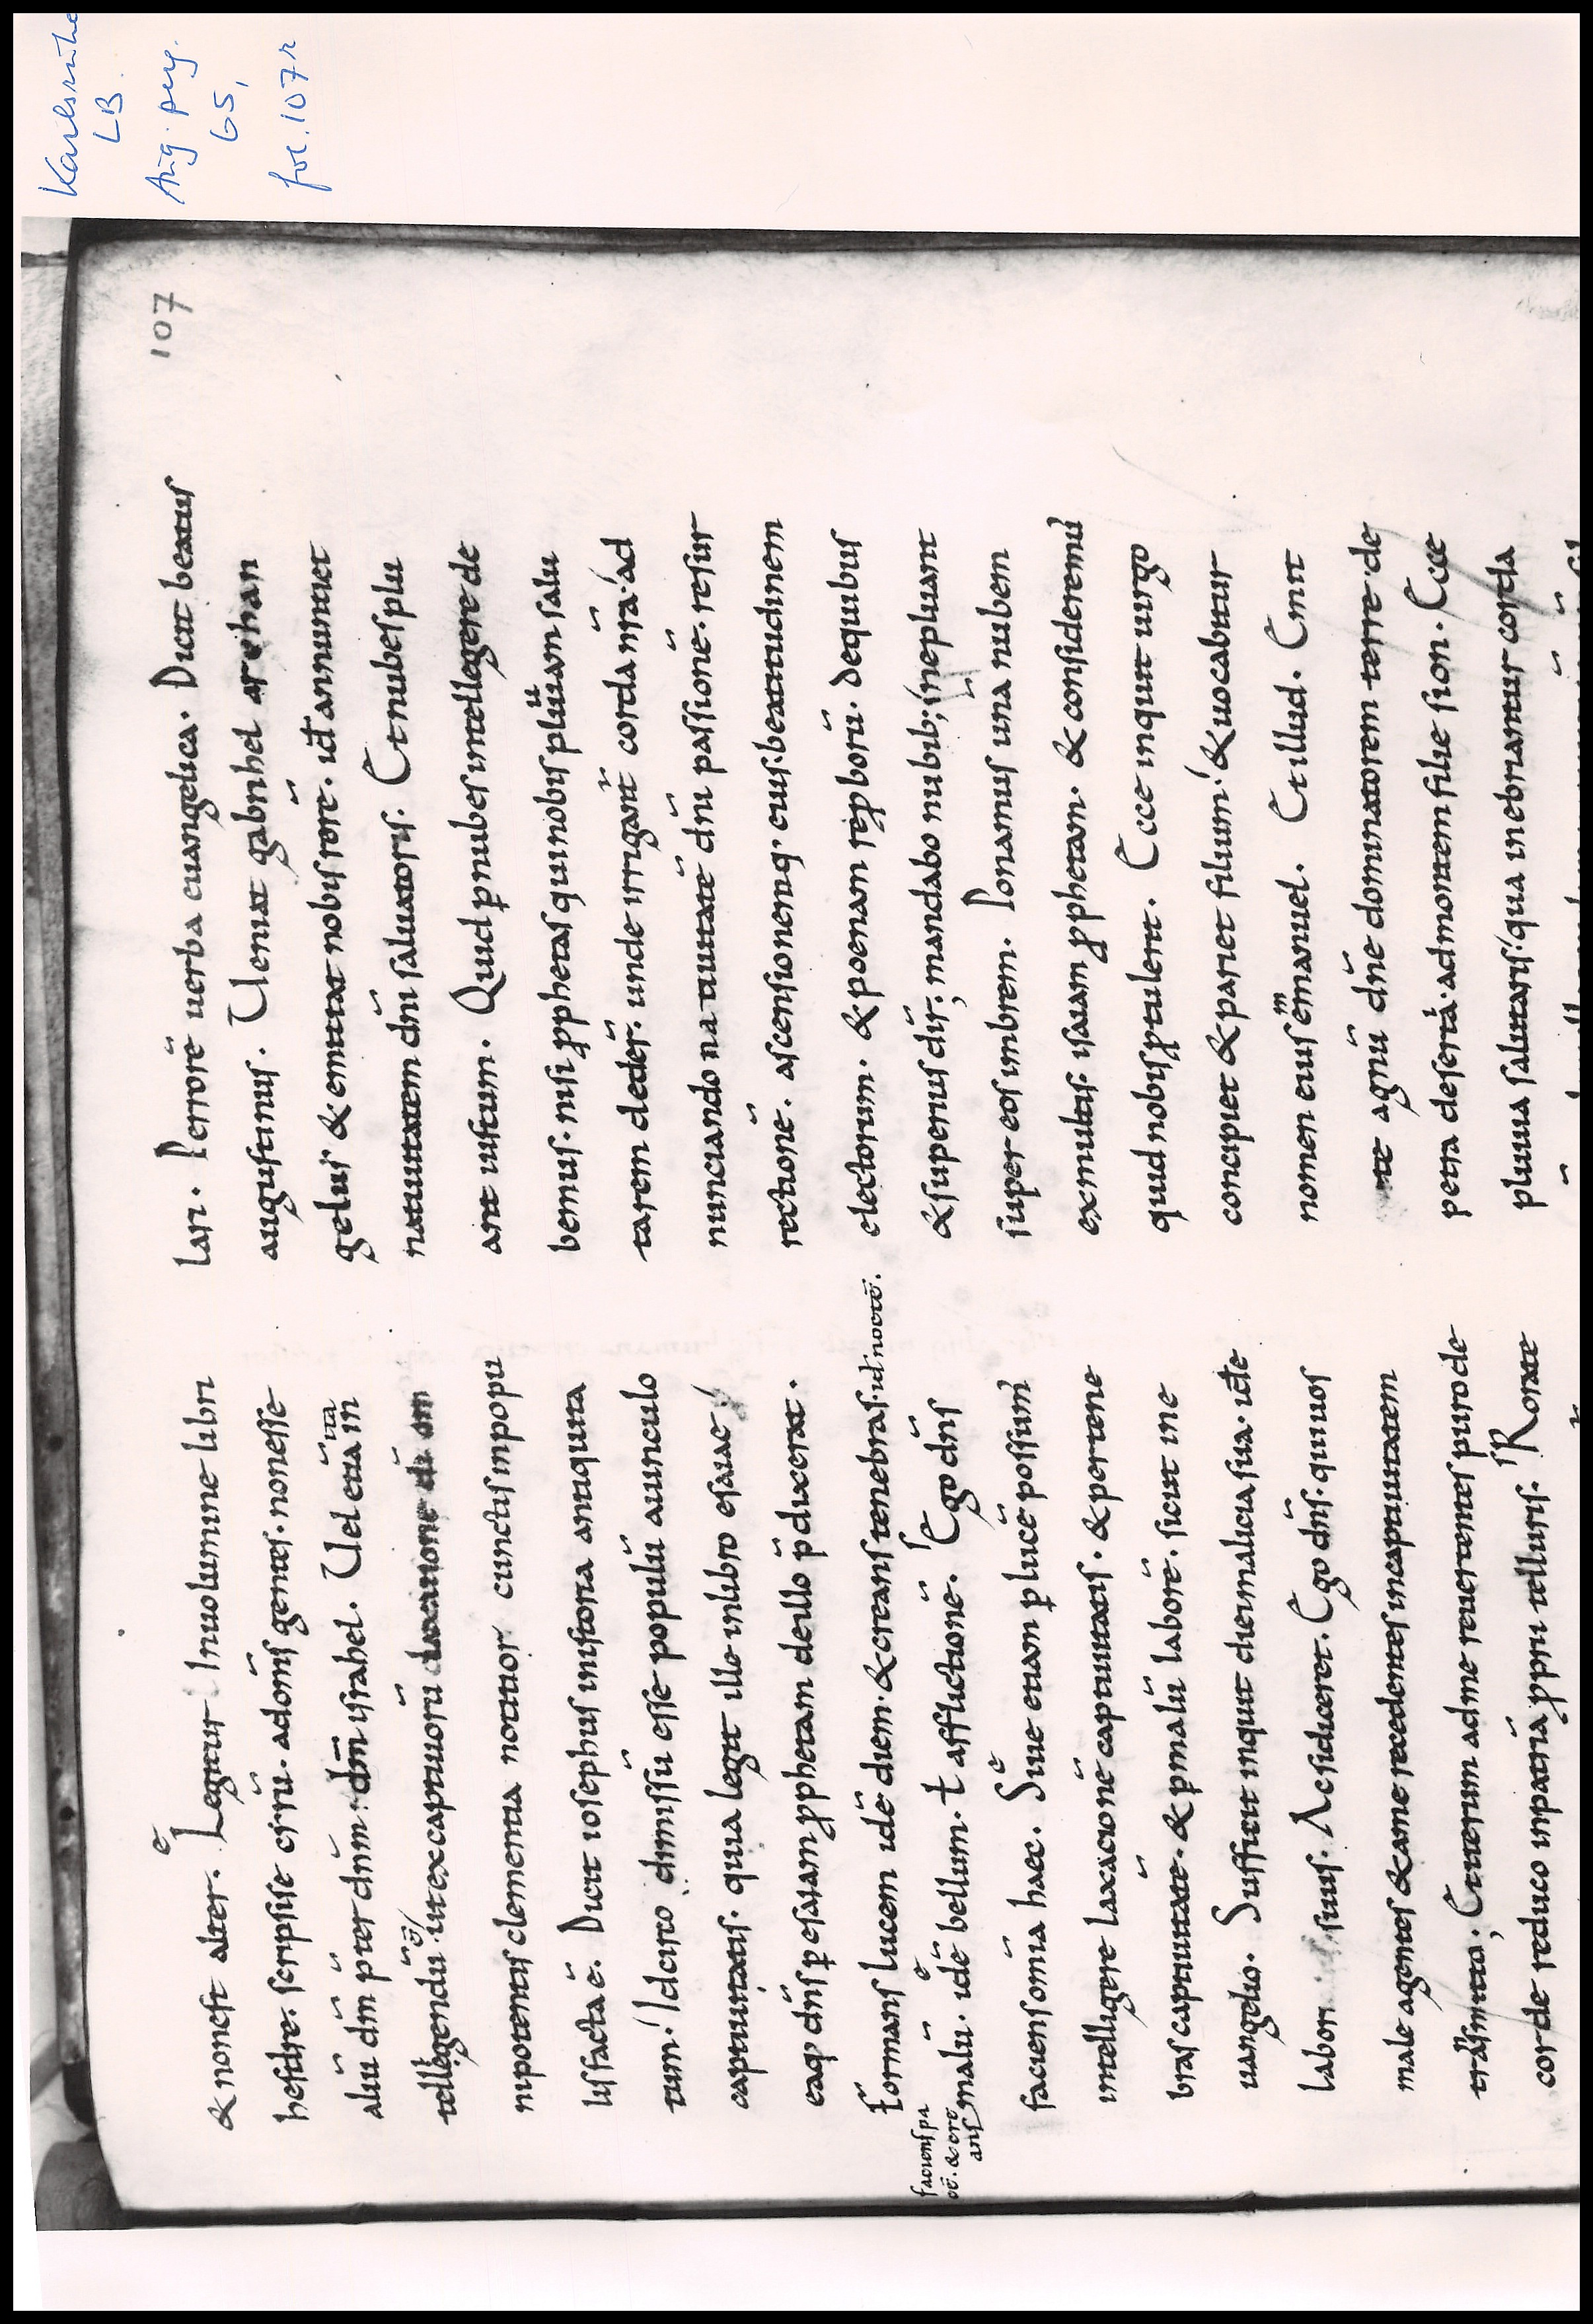 Karlsruhe
LB
Aug. perg.
fol. 107r
107
& non est alter. Legitur Inuolumine libri
hesdre. scripsisse cÿrū. adom̄s gentes. nonesse
aliū dm̄ p̄ter dnm̄. dm̄ israhel. Uel etiā in
tellegendū. ut ex captiuorū laxatione di om
nipotentis clementia notior cunctis inpopu
lis facta ē. Dicit iosephus inistoria antiquita
tum. Idcirco dimissū esse populū auinculo
captiuitatis. quia legit ille inlibro esaiae.
eaq; dn̄s ꝑ esaiam ꝓphetam deillo p̄dixerat.
formans lucem idē diem. & creans tenebras. id noctē.
faciens pa
cē. & cre
ans
malū. idē bellum. ł afflictionē. Ego dn̄s
faciens om̄ia haec. Siue etiam ꝑ lucē possum
intelligere laxacionē captiuitatis. & per tene
bras captiuitate. & ꝑ malū laborē. sicut in e
uangelio. Sufficit inquit diei malicia sua. idē
labor suus. Ac si diceret. Ego dn̄s. qui uos
male agentes & ame recedentes in captiuitatem
trāsmitto. Et iterum adme reuertentes puro de
corde reduco inpatriā ꝓprii telluris. Rorate
lari. Per rorē uerba euangelica. Dicit beatus
augustinus. Ueniat gabrihel archan
gelus & emittat nobis rorē. id annuntiet
natiuitatem dn̄i saluatoris. Et nubes plu
ant iustum. Quid ꝑ nubes intellegere de
bemus. nisi ꝓphetas qui nobis pluuiam salu
tarem dederī. unde irrigant̄ corda nrā. ad
nunciando natiuitatē dn̄i passionē. resur
rectionē. ascensionemq; eius. beatitudinem
electorum. & poenam reꝓborū. dequibus
& superius dix̄; mandabo nubib; ne pluant
super eos imbrem. Ponamus una nubem
ex multis. isaiam ꝓphetam. & consideremus
quid nobis ꝓtulerit. Ecce inquit uirgo
concipiet & pariet filium. & uocabitur
nomen eius emanuel. Et illud. Emit
te agnū dn̄e dominatorem terre. de
petra deserti. admontem filie sion. Ecce
pluuia salutaris. qua inebriantur corda